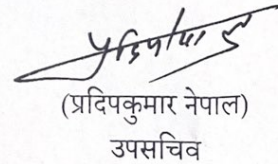 (प्रदिपकुमार नेपाल)
उपसचिव